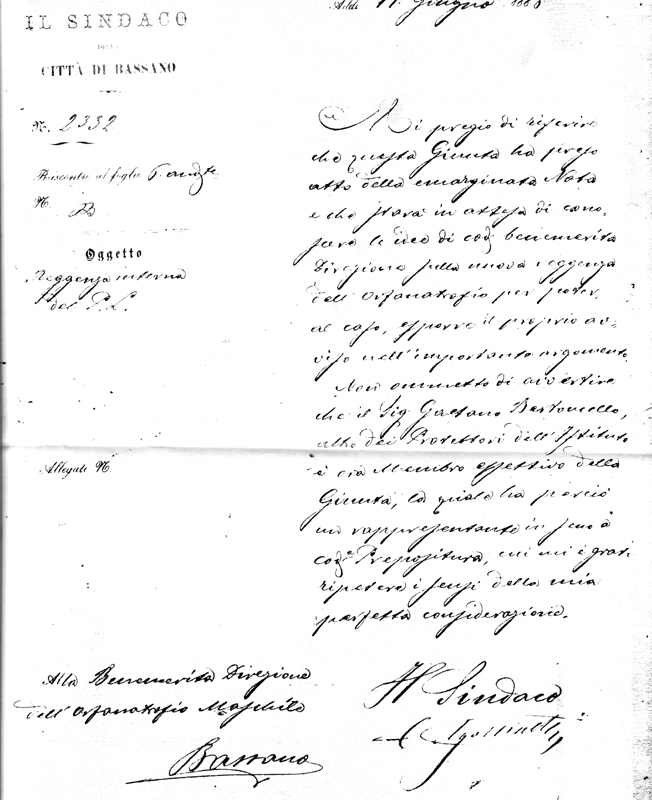 Addì 11. Giugno 188
IL SINDACO
DELLA
CITTÀ DI BASSANO
N. 2332
Riscontro al foglio 6. and.te
N. B
Oggetto
Reggenza interna
del P. L.
Mi pregio di riferire
che questa Giunta ha preso
atto della emarginata Nota
e che starà in attesa di cono-
scere le idee di cod. benemerita
Direzione sulla nuova reggenza
dell'Orfanatrofio per poter,
al caso, esporre il proprio av-
viso nell'importante argomento.
Non ommetto di avvertire
che il Sig Gaetano Bertoncello,
altro dei Protettori dell'Istituto
è ora Membro effettivo della
Giunta, la quale ha perciò
un rappresentante in seno a
cod.a Prepositura, cui mi è grato
ripetere i sensi della mia
perfetta considerazione.
Allegati N.
Alla Benemerita Direzione
dell'Orfanatrofio Maschile
Bassano
Il Sindaco